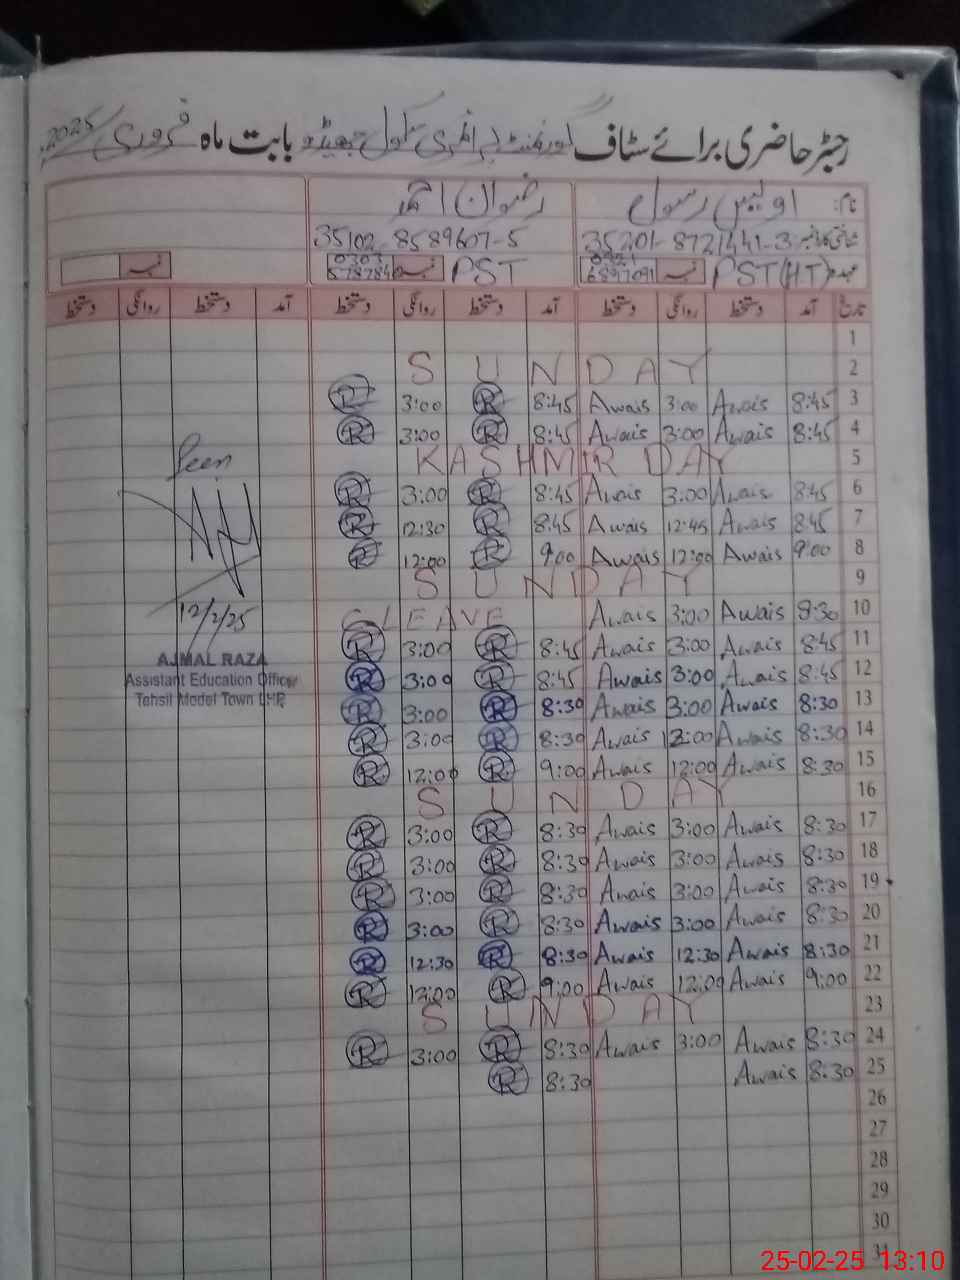 رجسٹر حاضری برائے سٹاف گورنمنٹ پرائمری سکول جھیڈو بابت ماہ فروری 2025
نام: اویس رسول رضوان احمد
شناختی کارڈ نمبر: 35201-8721441-3 35102-8589607-5
عہدہ PST(HT) نمبر PST نمبر نمبر
تاریخ آمد دستخط روانگی دستخط آمد دستخط روانگی دستخط آمد دستخط روانگی دستخط
1
2 SUNDAY
3 8:45 Awais 3:00 Awais 8:45 R 3:00 R
4 8:45 Awais 3:00 Awais 8:45 R 3:00 R
5 KASHMIR DAY
6 8:45 Awais 3:00 Awais 8:45 R 3:00 R
7 8:45 Awais 12:45 Awais 8:45 R 12:30 R
8 9:00 Awais 12:00 Awais 9:00 R 12:00 R
9 SUNDAY
10 8:30 Awais 3:00 Awais LEAVE
11 8:45 Awais 3:00 Awais 8:45 R 3:00 R
12 8:45 Awais 3:00 Awais 8:45 R 3:00 R
13 8:30 Awais 3:00 Awais 8:30 R 3:00 R
14 8:30 Awais Awais 8:30 R 3:00 R
15 8:30 Awais 12:00 Awais 9:00 R 12:00 R
16 SUNDAY
17 8:30 Awais 3:00 Awais 8:30 R 3:00 R
18 8:30 Awais 3:00 Awais 8:30 R 3:00 R
19 8:30 Awais 3:00 Awais 8:30 R 3:00 R
20 8:30 Awais 3:00 Awais 8:30 R 3:00 R
21 8:30 Awais 12:30 Awais 8:30 R 12:30 R
22 9:00 Awais 12:00 Awais 9:00 R 12:00 R
23 SUNDAY
24 8:30 Awais 3:00 Awais 8:30 R 3:00 R
25 8:30 Awais 8:30 R
26
27
28
29
30
31
Seen
12/2/25
AJMAL RAZA
Assistant Education Officer
Tehsil Model Town LHR
25-02-25 13:10